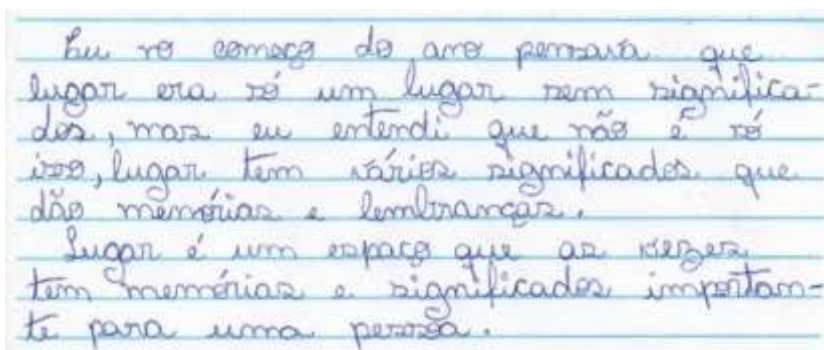 Eu no começo do ano pensava que
lugar era só um lugar sem significa-
dos, mas eu entendi que não é só
isso, lugar tem vários significados que
dão memórias e lembranças.
Lugar é um espaço que as vezes
tem memórias e significados importan-
te para uma pessoa.